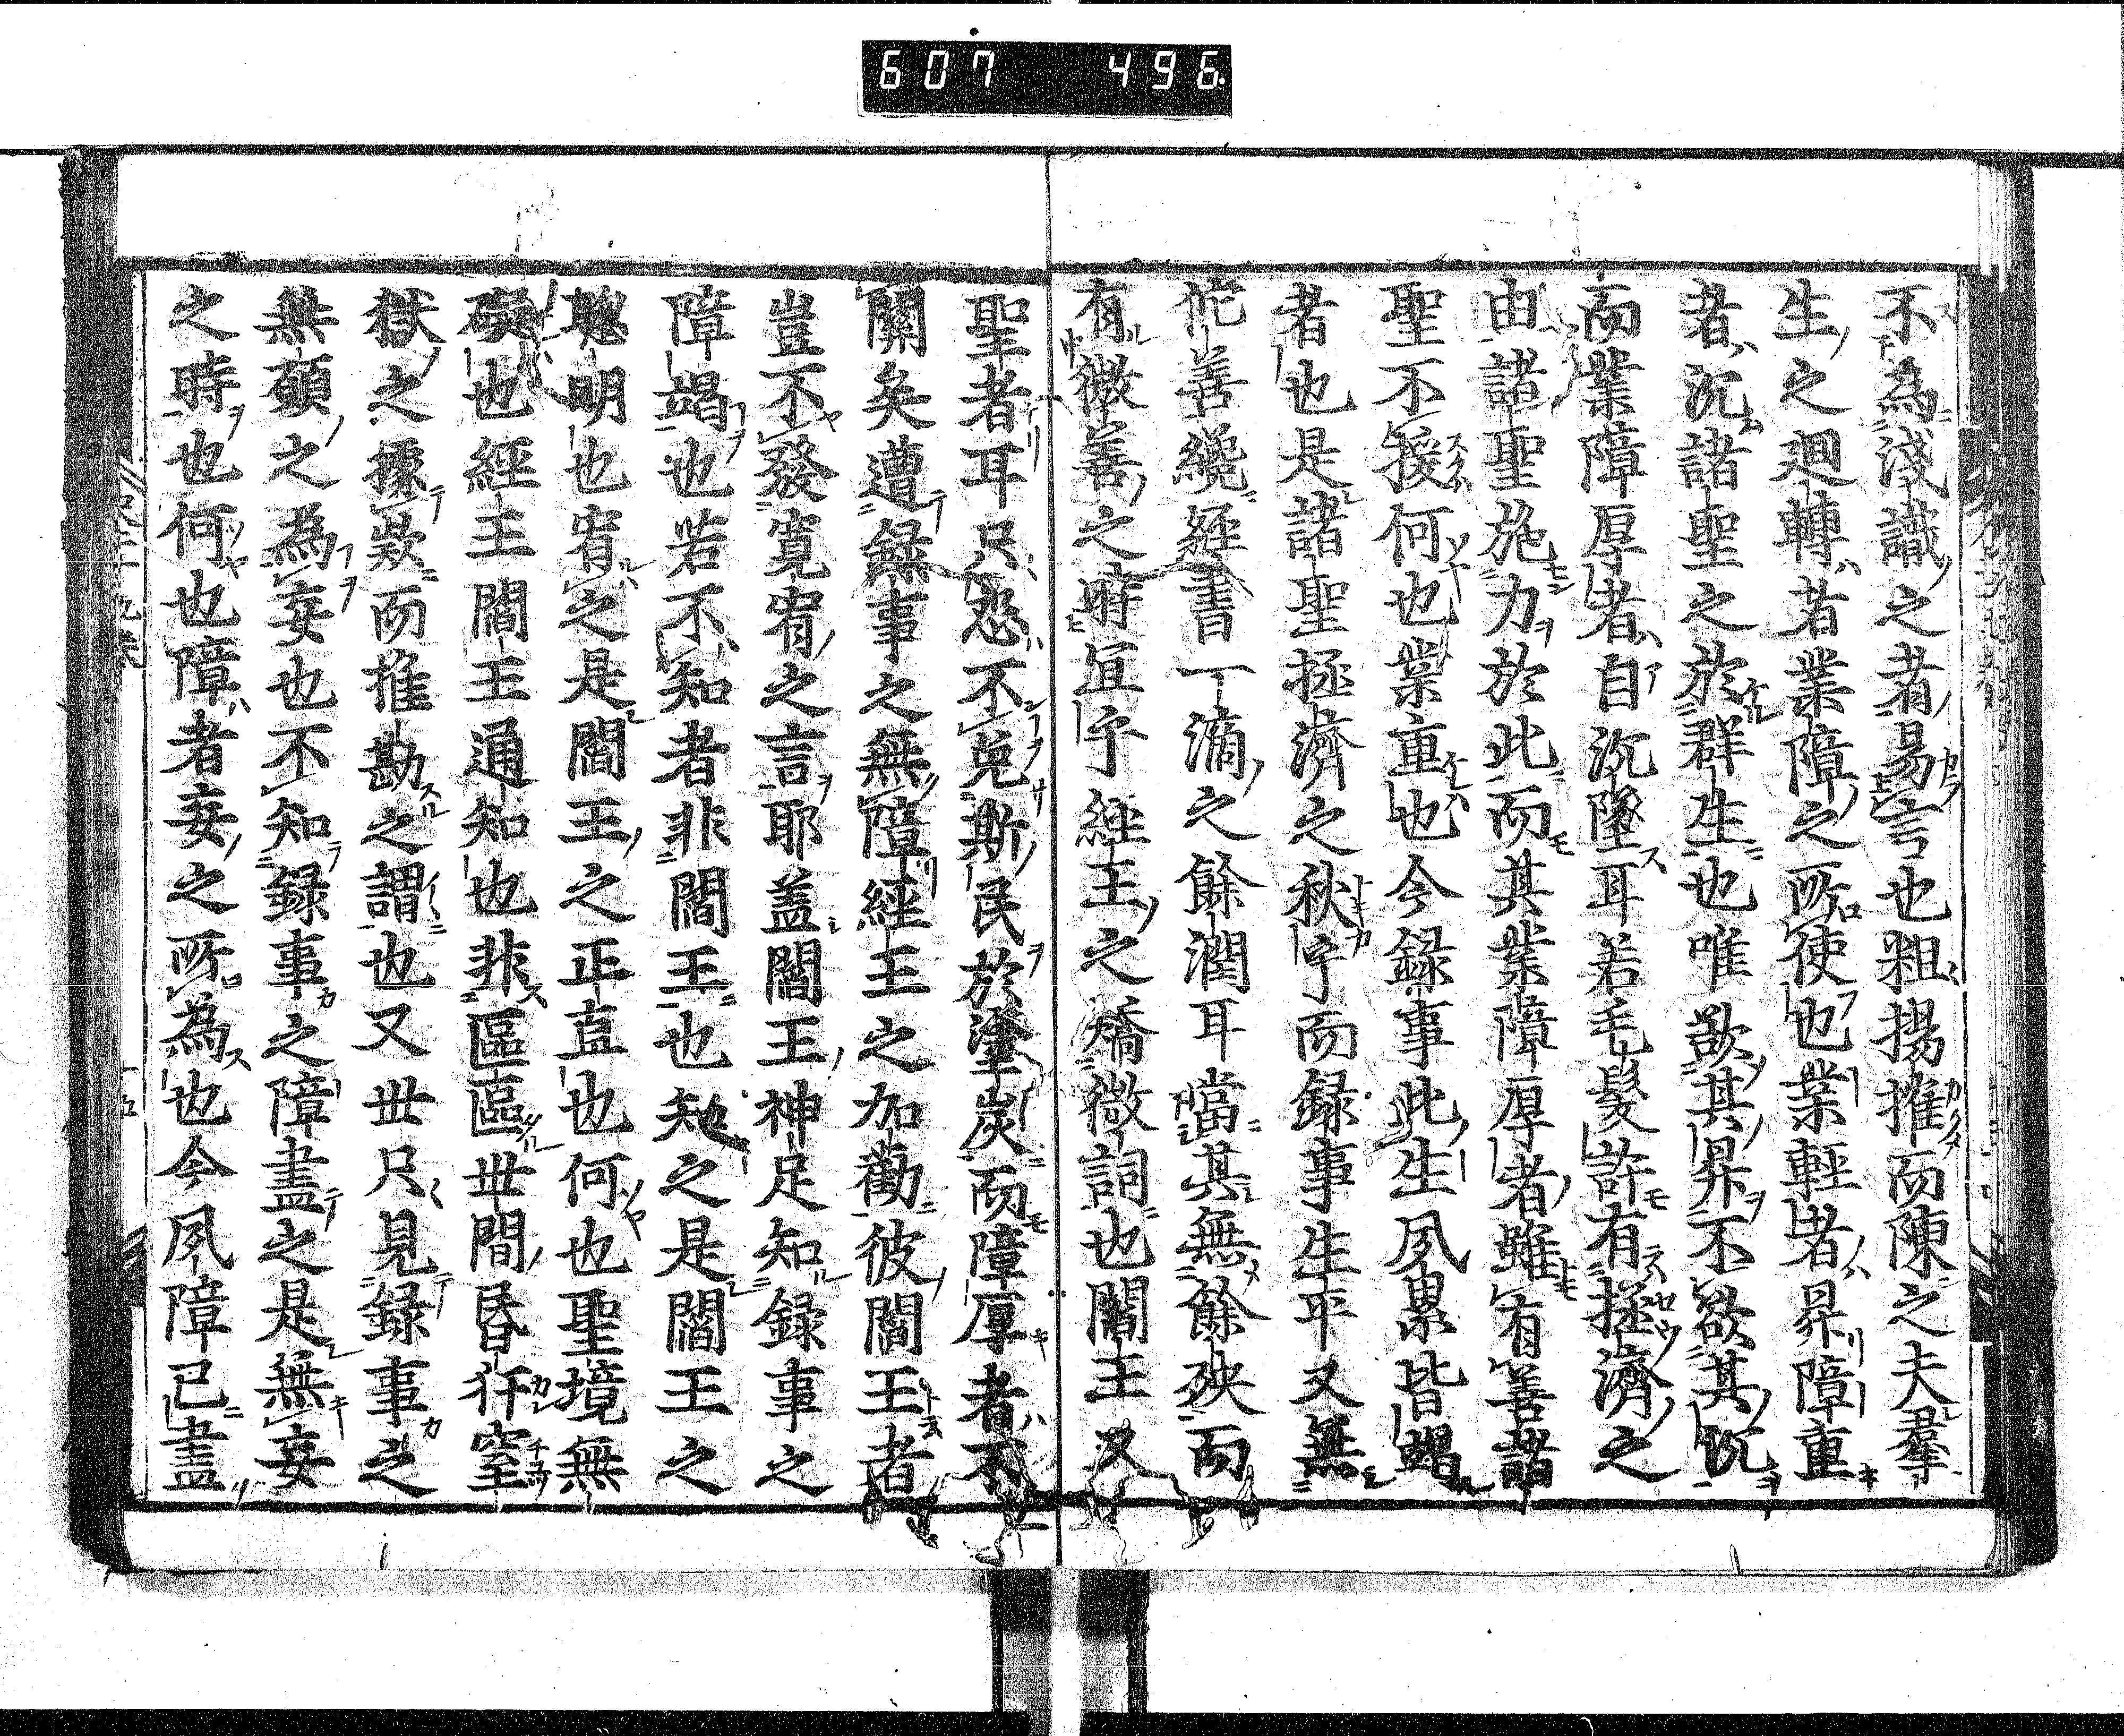 607 496
不為淺識之者易言也粗揚搉而陳之夫羣
生之廻轉者業障之所使也業輕者昇障重
者沉諸聖之於群生也唯欲其昇不欲其沉
而業障厚者自沉墜耳若毛髮許有拯濟之
由諸聖施力於此而其業障厚者雖有善諸
聖不授何也業重也今録事此生夙累皆竭
者也是諸聖拯濟之秋乎而録事生平又無
佗善纔經書一滴之餘潤耳當其無餘殃而
有微善之時宜乎經王之矯微詞也閻王又
聖者耳只恐不免斯民於塗炭而障厚者不
關矣遭録事之無障經王之加勸彼閻王者
豈不發寬宥之言耶盖閻王神足知録事之
障竭也若不知者非閻王也知之是閻王之
聰明也宥之是閻王之正直也何也聖境無
礙也經王閻王通知也非區區世間昏犴窒
獄之據欵而推勘之謂也又世只見録事之
無願之為妄也不知録事之障盡之是無妄
之時也何也障者妄之所為也今夙障已盡